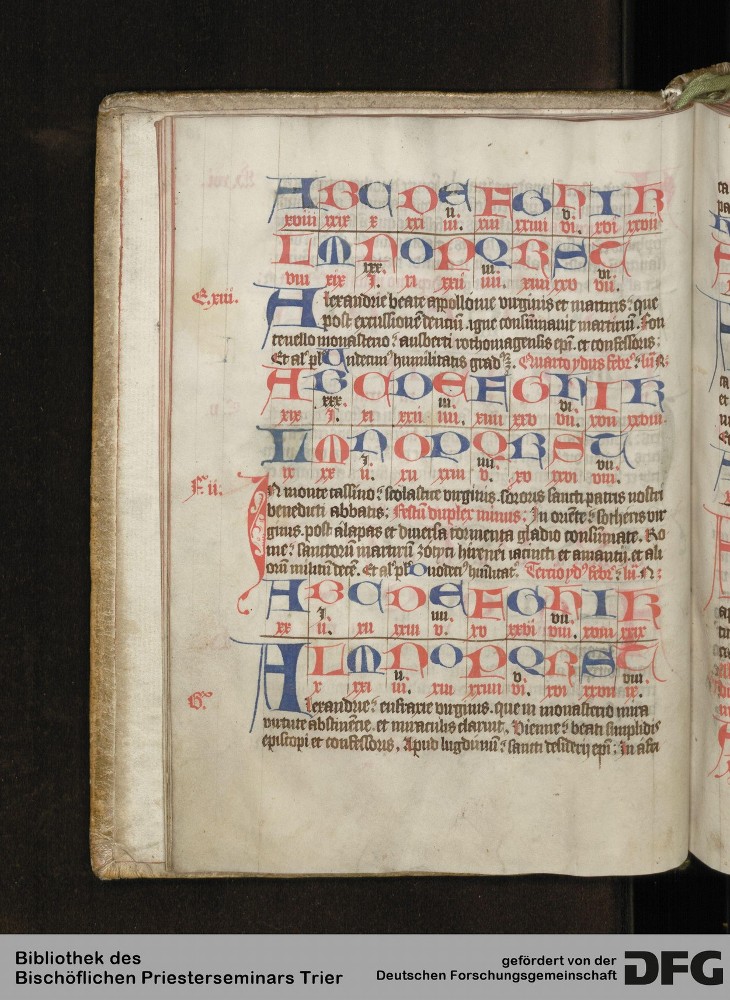 A B C D E F G H I K
xviii xxix x xxi ii. iii. xiii xxiiii v. vi. xvi xxvii
L M N O P Q R S T
viii xix xxx. I. xi xxii iii. iiii. xiiii xxv vi. vii.
E. xiii.
Alexandrie beate appollonie virginis et martiris: que
post excussionē dentiū. igne consūmauit martiriū. Fon
tenello monasterio: ausberti rothomagensis epī. et confessoris:
Et al pl Undecim' humilitatis grad'. Quarto ydus febr': lūn:
A B C D E F G H I K
xix xxx. I. xi xxii iii. iiii. xiiii xxv vi. vii. xvii xxviii
L M N O P Q R S T
ix xx I. ii. xii xxiii iiii. v. xv xxvi vii. viii.
F. ii.
In monte cassino: scolastice virginis. sororis sancti patris nostri
benedicti abbatis: Festū duplex minus: In oriēte: sotheris vir
ginis. post alapas et diuersa tormenta gladio consūmate. Ro
me: sanctorū martirū zotyci hirenei iacincti et amantij. et ali
orū militū decē. Et al pl Duodeci' hūilitat'. Tercio yd' febr': lū: N:
A B C D E F G H I K
xx I. ii. xii xxiii iiii. v. xv xxvi vii. viii. xviii xxix
L M N O P Q R S T
x xxi ii. iii. xiii xxiiii v. vi. xvi xxvii viii. ix.
G.
Alexandrie: eufraxie virginis. que in monasterio mira
virtute abstinētie. et miraculis claruit. Vienne: beati simplidis
episcopi et confessoris. Apud lugdunū: sancti desiderij epī: In afri
Bibliothek des
Bischöflichen Priesterseminars Trier
gefördert von der
Deutschen Forschungsgemeinschaft
DFG